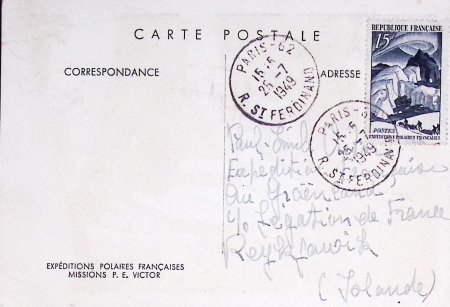 CARTE POSTALE
CORRESPONDANCE
ADRESSE
PARIS-62
15H5
25-7
1949
R. ST FERDINAND
15F
RÉPUBLIQUE FRANÇAISE
POSTES
EXPÉDITIONS POLAIRES FRANÇAISES
PARIS-62
15H5
25-7
1949
R. ST FERDINAND
Paul Emile
Expédition Française
au Groenland
c/o Légation de France
Reykjavik
(Islande)
EXPÉDITIONS POLAIRES FRANÇAISES
MISSIONS P. E. VICTOR